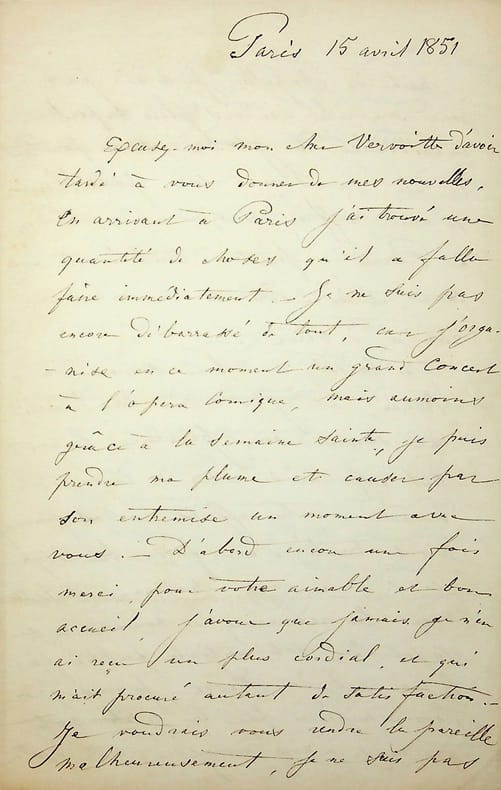 Paris 15 avril 1851
Excusez-moi mon cher Vervoitte d'avoir
tardé à vous donner de mes nouvelles,
en arrivant à Paris j'ai trouvé une
quantité de choses qu'il a fallu
faire immédiatement. – Je ne suis pas
encore débarrassé de tout, car j'orga-
-nise en ce moment un grand Concert
à l'opera Comique, mais aumoins
grâce à la semaine sainte, je puis
prendre ma plume et causer par
son entremise un moment avec
vous. – D'abord encore une fois
merci, pour votre aimable et bon
accueil, j'avoue que jamais je n'en
ai reçu un plus cordial, et qui
m'ait procuré autant de satisfaction. –
Je voudrais vous rendre la pareille
malheureusement, je ne suis pas